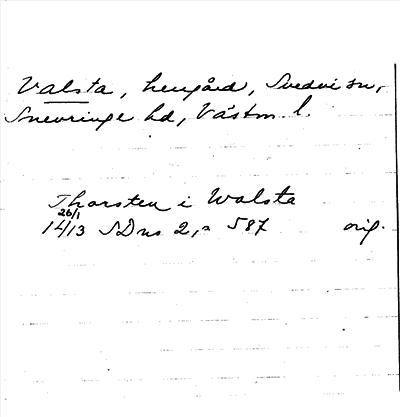 Valsta, herrgård, Svedvi sn,
Snevringe hd, Västm. l.
Thorsten i Walsta
26/1
1413 SDns 2, 587 orig.